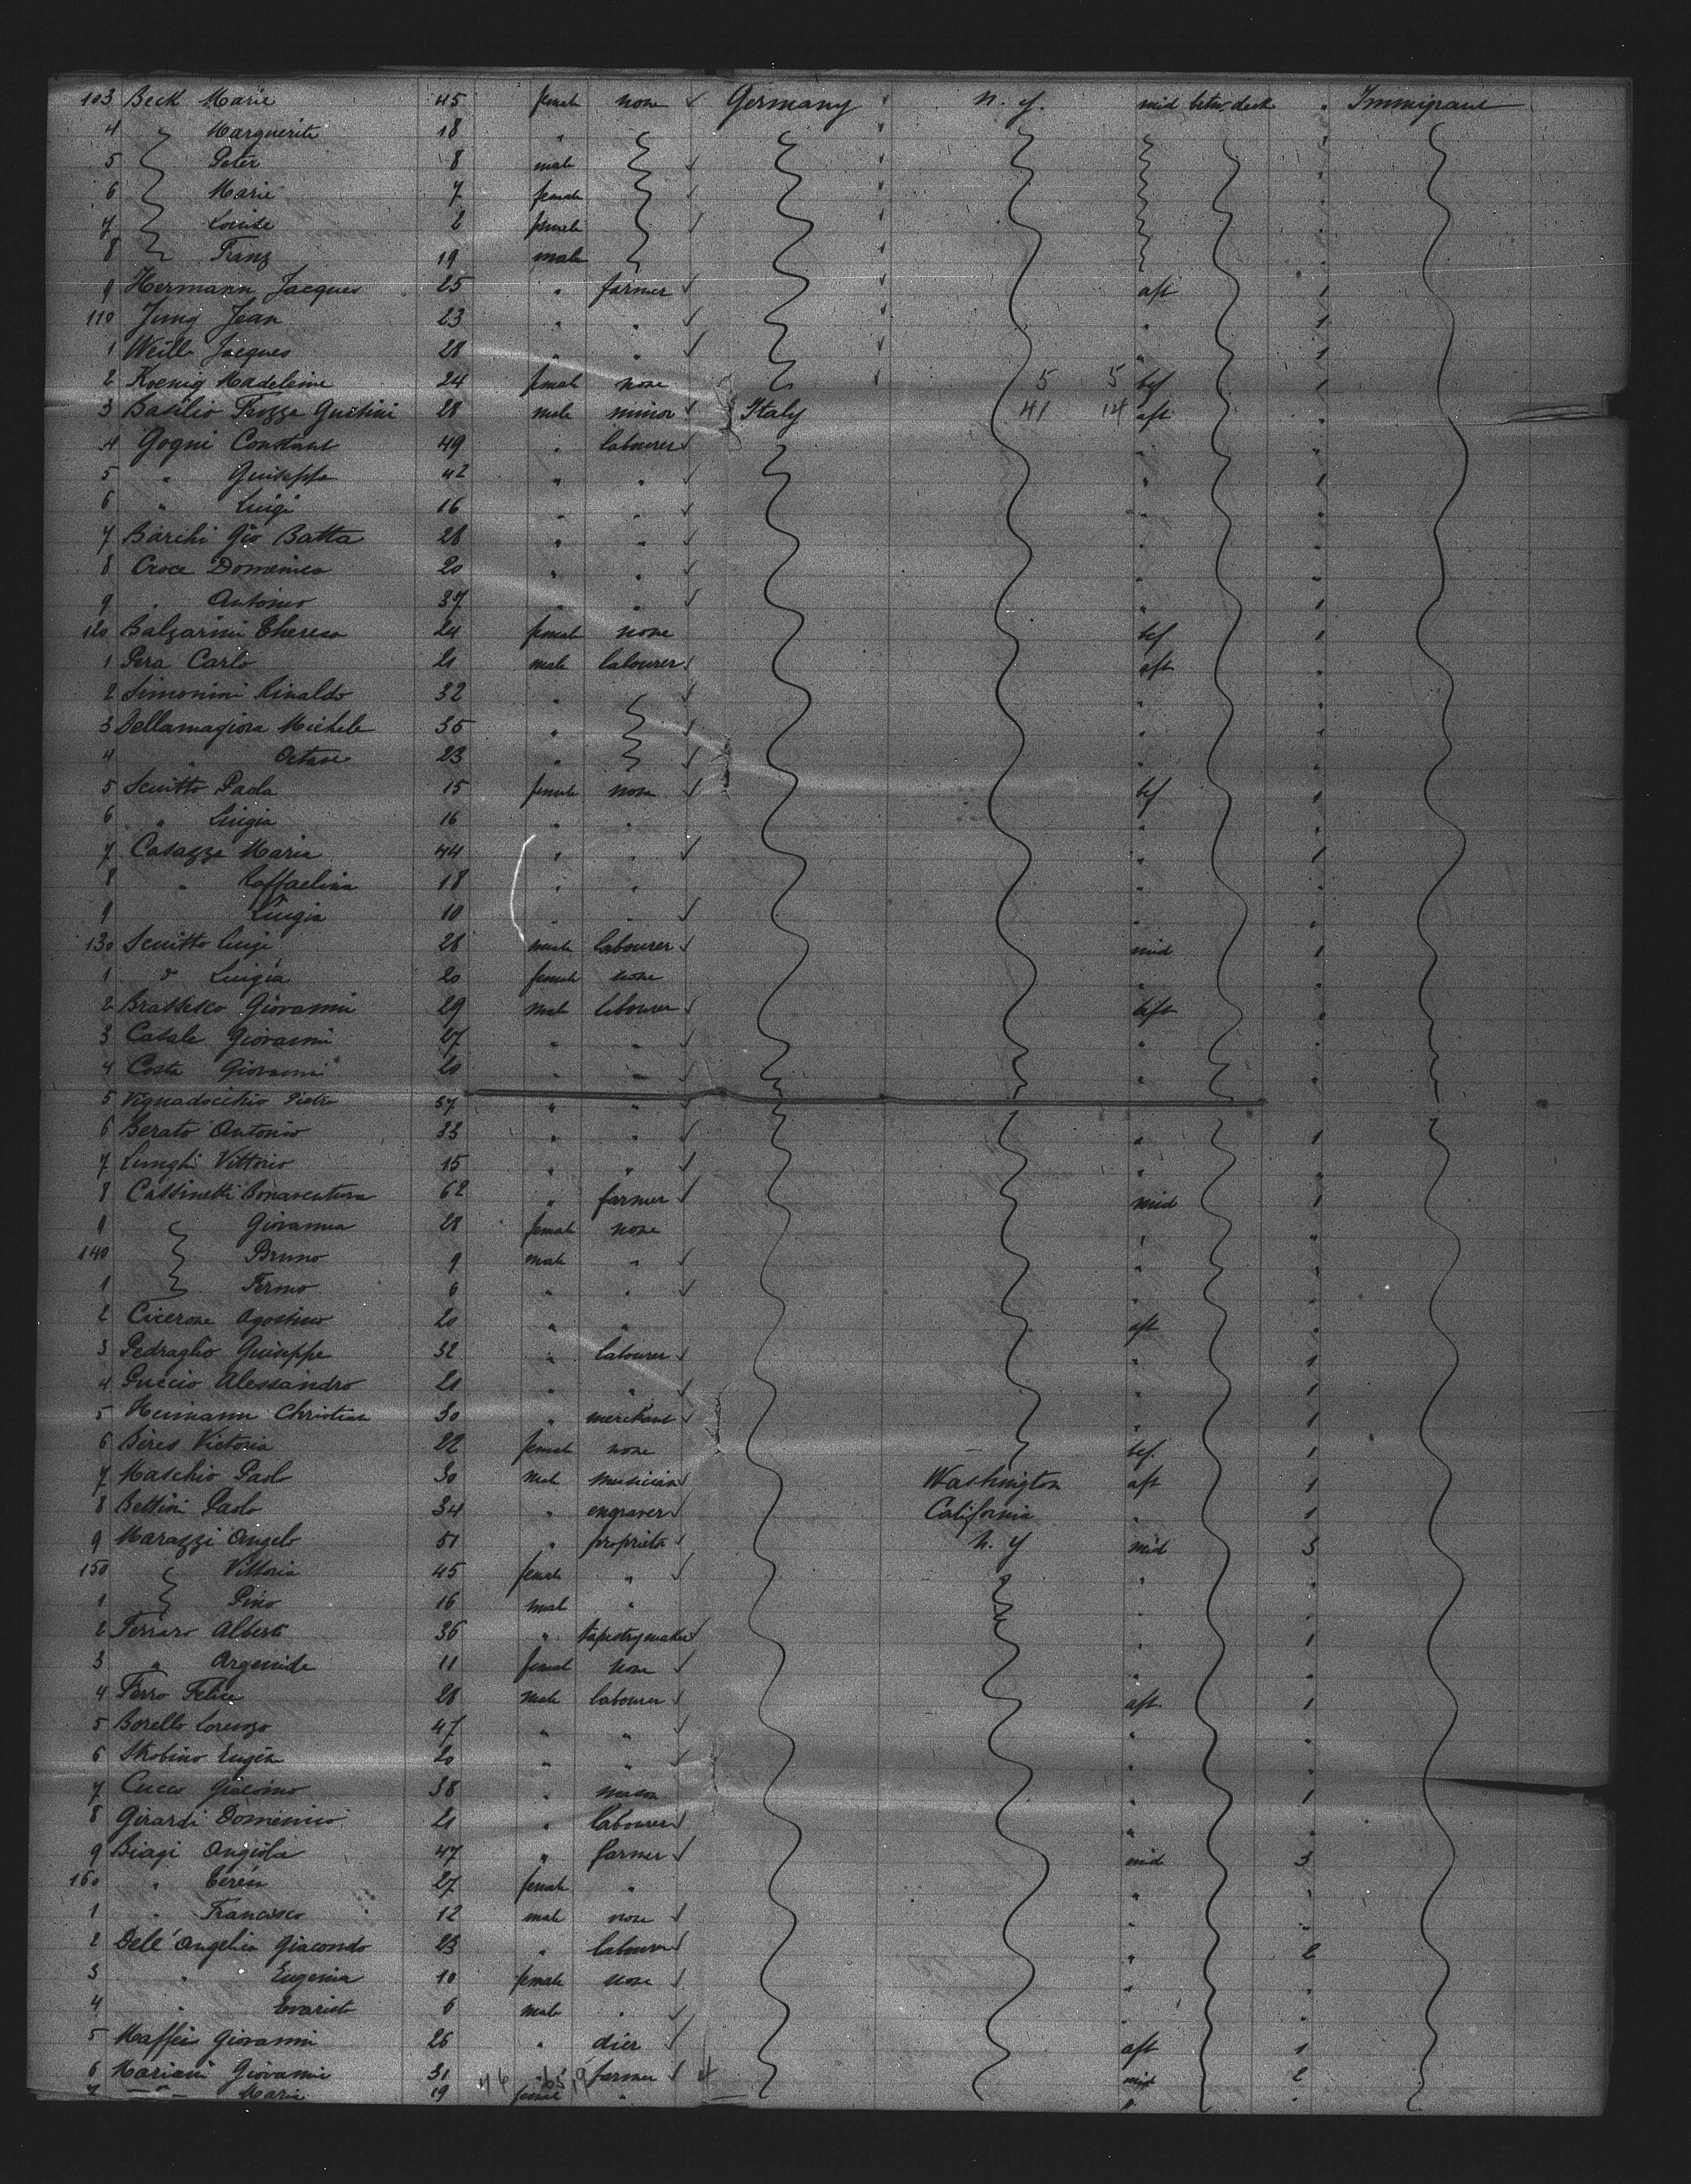 103 Beck Marie 45 female none Germany n. y. mid betw. deck " Immigrant
4 Marguerite 18 "
5 Peter 8 male
6 Marie 7 female
7 Louise 2 female
8 Franz 19 male
9 Hermann Jacques 25 " farmer aft 1
110 Jung Jean 23 " " " 1
1 Weill Jacques 28 " " " 1
2 Koenig Madeleine 24 female none 5 5 bef 1
3 Basilio Frozze 28 male minor Italy 41 14 aft "
4 Gogni Constant 49 " labourer " "
5 " Guiseppe 42 " " " 1
6 " Luigi 16 " " " "
7 Barchi Gio Batta 28 " " " "
8 Croce Domenico 20 " " " "
9 " Antonio 37 " " " 1
120 Balzarini Theresa 24 female none bef 1
1 Pera Carlo 21 male labourer aft "
2 Simonini Rinaldo 32 " " " "
3 Dellamagiora Michele 35 " " "
4 " Octave 23 " " "
5 Scuitto Paola 15 female none bef 1
6 " Luigia 16 " " " "
7 Casazza Maria 44 " " " 1
8 " Raffaelina 18 " " " "
9 Luigia 10 " " " "
130 Scuitto Luigi 28 male labourer mid 1
1 " Luigia 20 female none " "
2 Brassesco Giovanni 29 male labourer aft "
3 Casale Giovanni 27 " " " "
4 Costa Giovanni 20 " " " "
5 Vignadocchio Pietro 37 " "
6 Berato Antonio 33 " " " 1
7 Lunghi Vittorio 15 " " " "
8 Cassinetti Bonaventura 62 " farmer mid 1
9 Giovanna 28 female none " "
140 Bruno 9 male " " "
1 Fermo 6 " " " "
2 Cicerone Agostino 20 " " aft "
3 Pedraglio Guiseppe 32 " labourer " 1
4 Puccio Alessandro 21 " " " 1
5 Heimann Christian 30 " merchant " 1
6 Beres Victoria 22 female none bef. 1
7 Maschio Paolo 30 male musician Washington aft 1
8 Bettini Paolo 34 " engraver California " 1
9 Marazzi Angelo 51 " n. y mid 3
150 Vittoria 45 female " " "
1 Pino 16 male " " "
2 Ferraro Alberto 36 " tapestrymaker " 1
3 " Argenide 11 female none " "
4 Ferro Felice 28 male labourer aft 1
5 Borello Lorenzo 47 " " " "
6 Strobino 20 " " " "
7 Cucco Giacomo 38 " mason " 1
8 Girardi Domenico 21 " labourer " "
9 Biagi Angiola 47 " farmer mid 3
160 " 27 female " " "
1 " Francesco 12 male none " "
2 Dell'Angelia Giacondo 23 " labourer " 2
3 " Eugenia 10 female none " "
4 " Evaristo 6 male " " "
5 Maffei Giovanni 26 " dier aft 1
6 Mariani Giovanni 31 " farmer mid 2
7 " Maria 19 female " " "